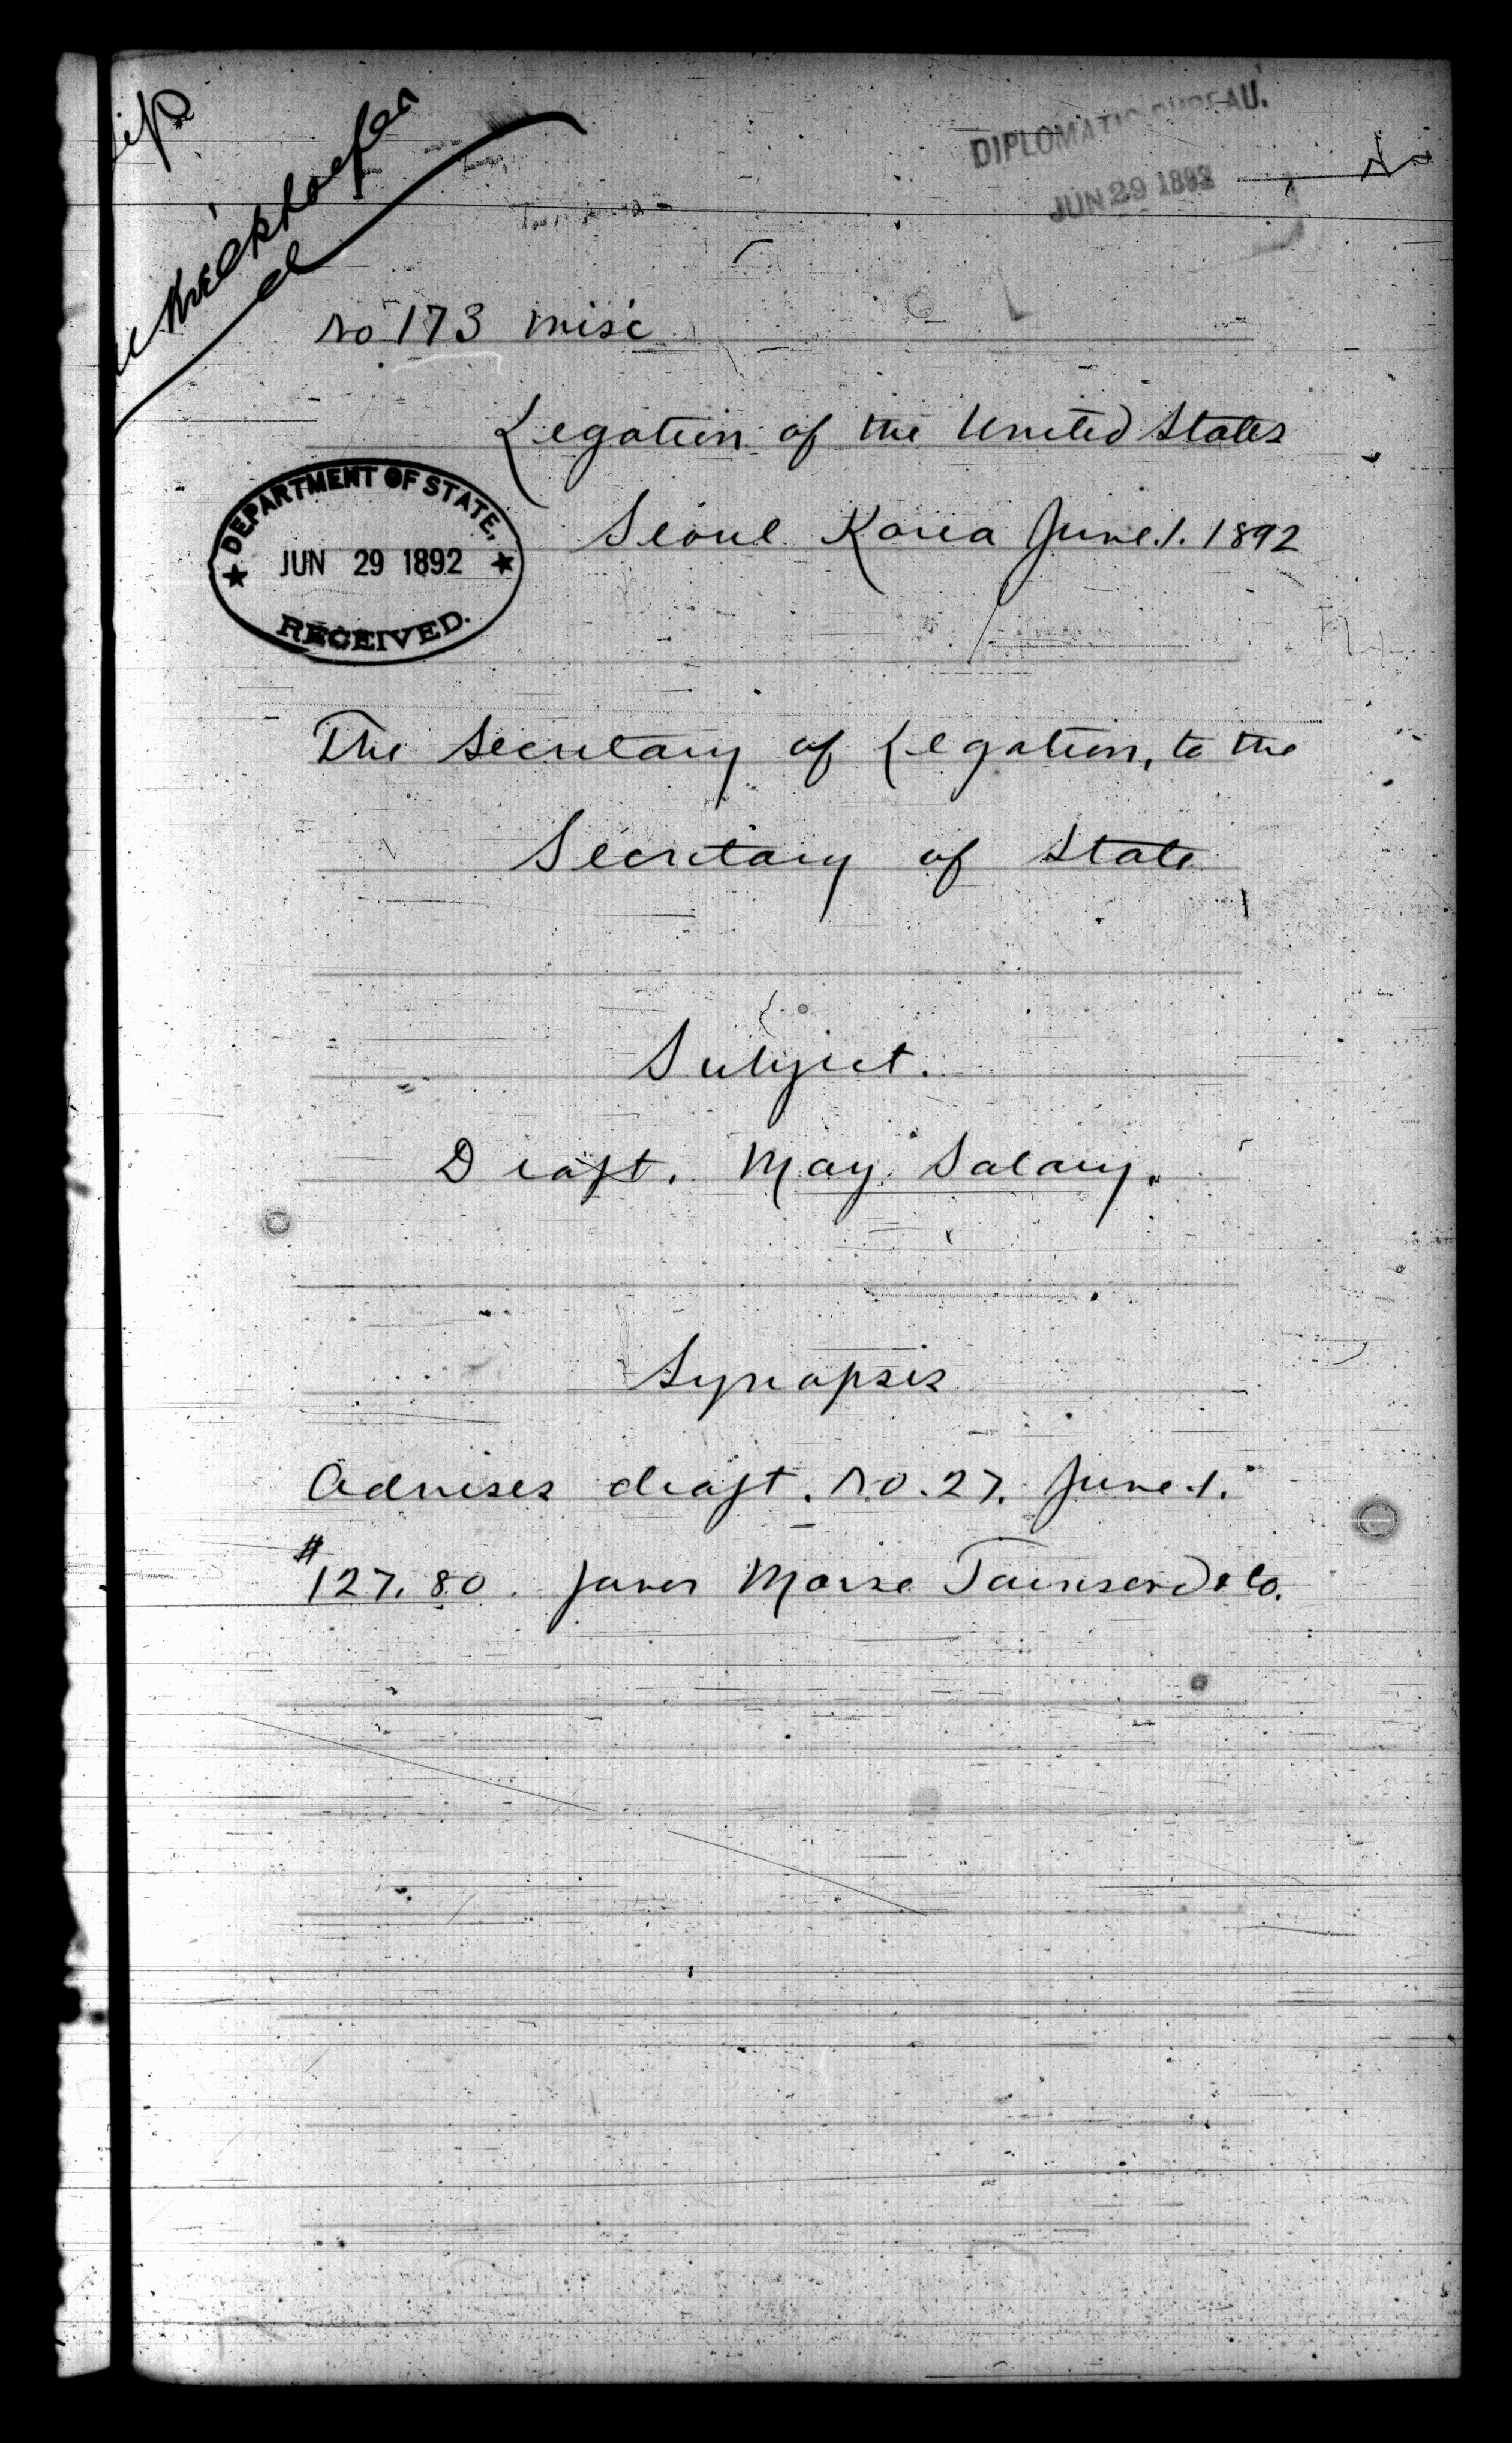 DIPLOMATIC BUREAU.
JUN 29 1892
Krieckhoefer
No 173 misc
Legation of the United States
Seoul Korea June.1.1892
DEPARTMENT OF STATE,
JUN 29 1892
RECEIVED.
The Secretary of Legation, to the
Secretary of State
Subject.
Draft. May Salary.
Synopsis
Advises draft. No.27. June.1.
$127.80. favor Morse Townsend & Co.